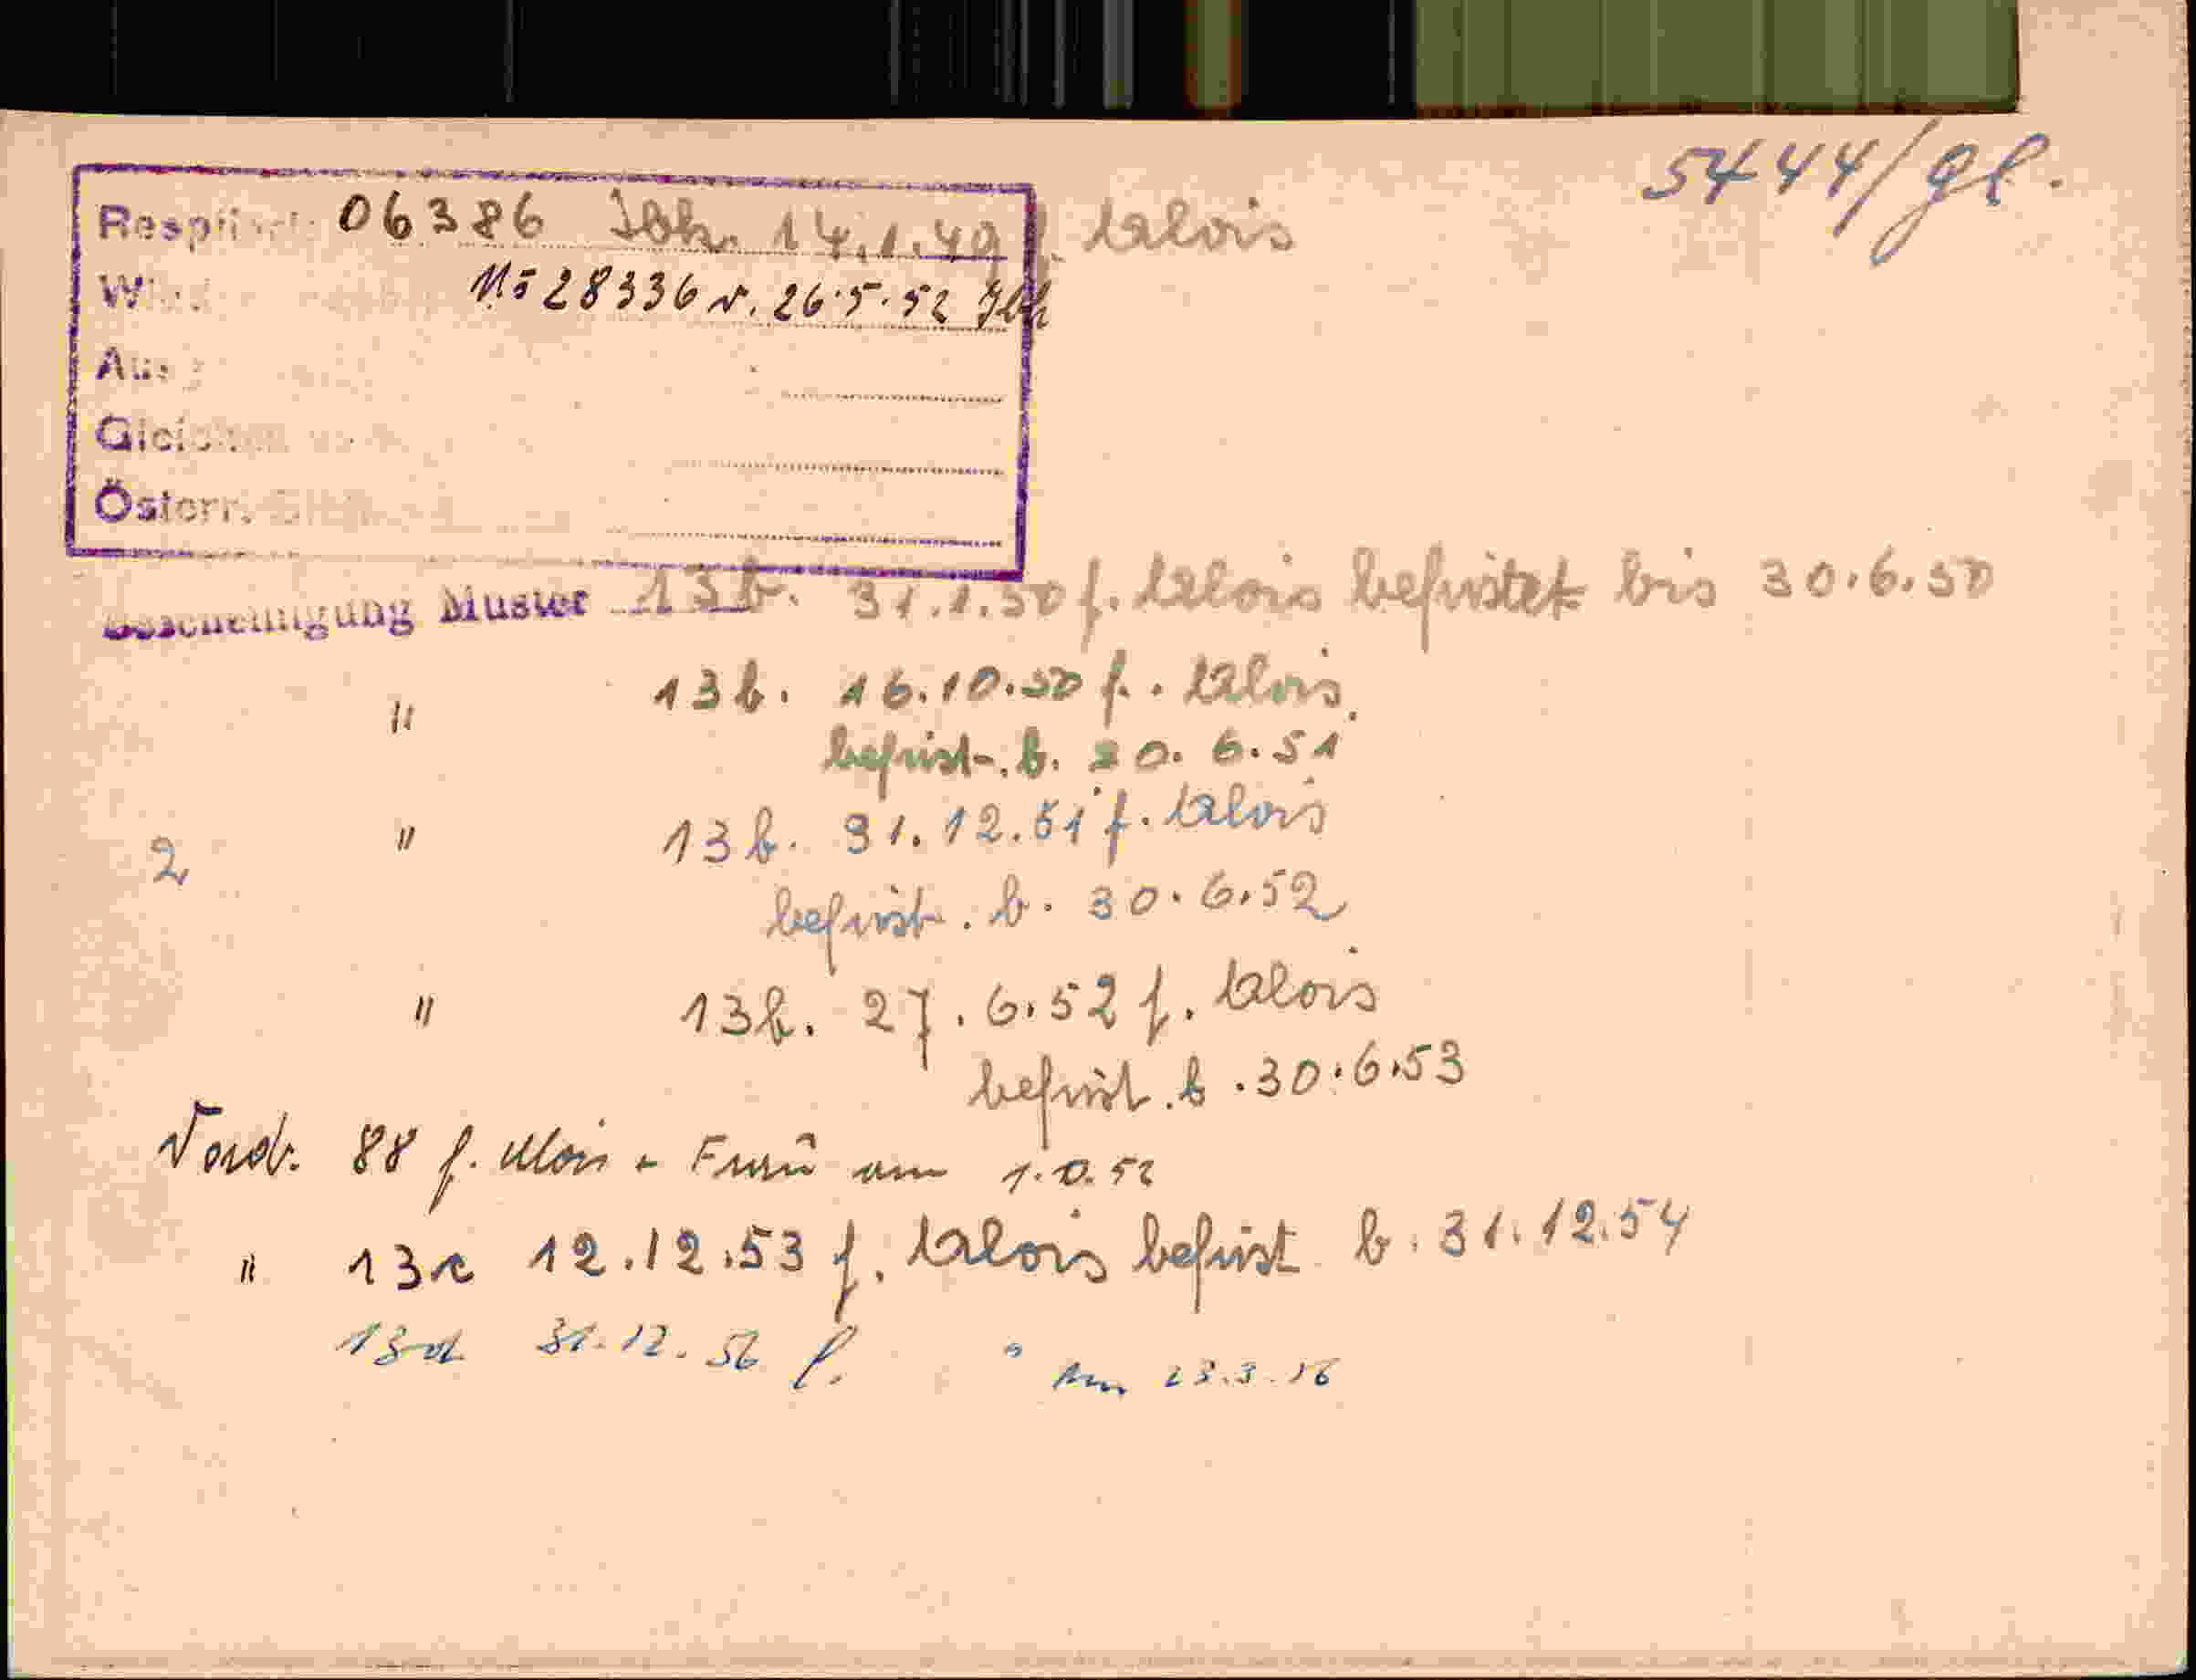 5444/gl.
06386 Ibk. 14.1.49 f. Alois
Nº 28336 v. 26.5.52 Ibk
Österr.
Bescheinigung Muster 13b. 31.1.50 f. Alois befristet bis 30.6.50
" 13b. 16.10.50 f. Alois
befrist. b. 30.6.51
2 " 13b. 31.12.51 f. Alois
befrist. b. 30.6.52
" 13b. 27.6.52 f. Alois
befrist. b. 30.6.53
88 f. Alois + Frau am
" 13c 12.12.53 f. Alois befrist b. 31.12.54
13d 31.12.56 f. "